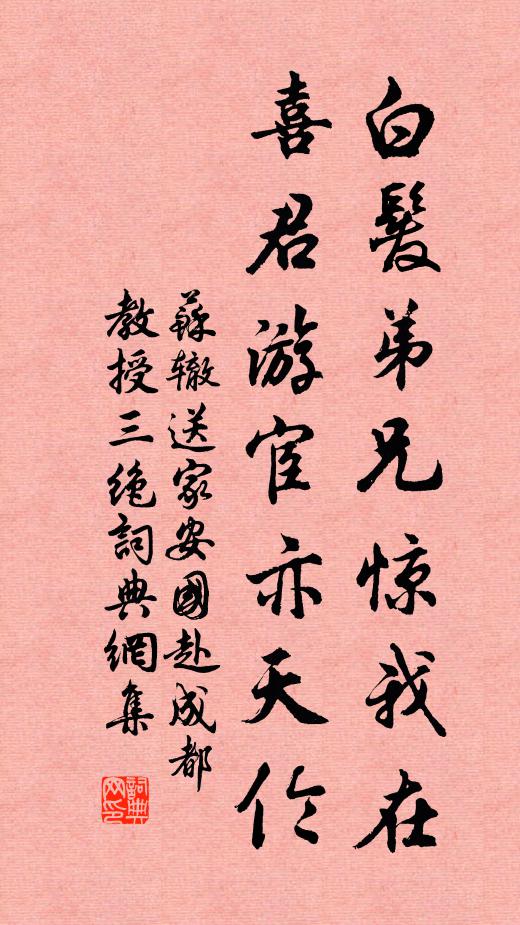 白髮弟兄惊我在
喜君游宦亦天伶
蘇辙送家安國赴成都
教授三绝詞典網集
詞典网印